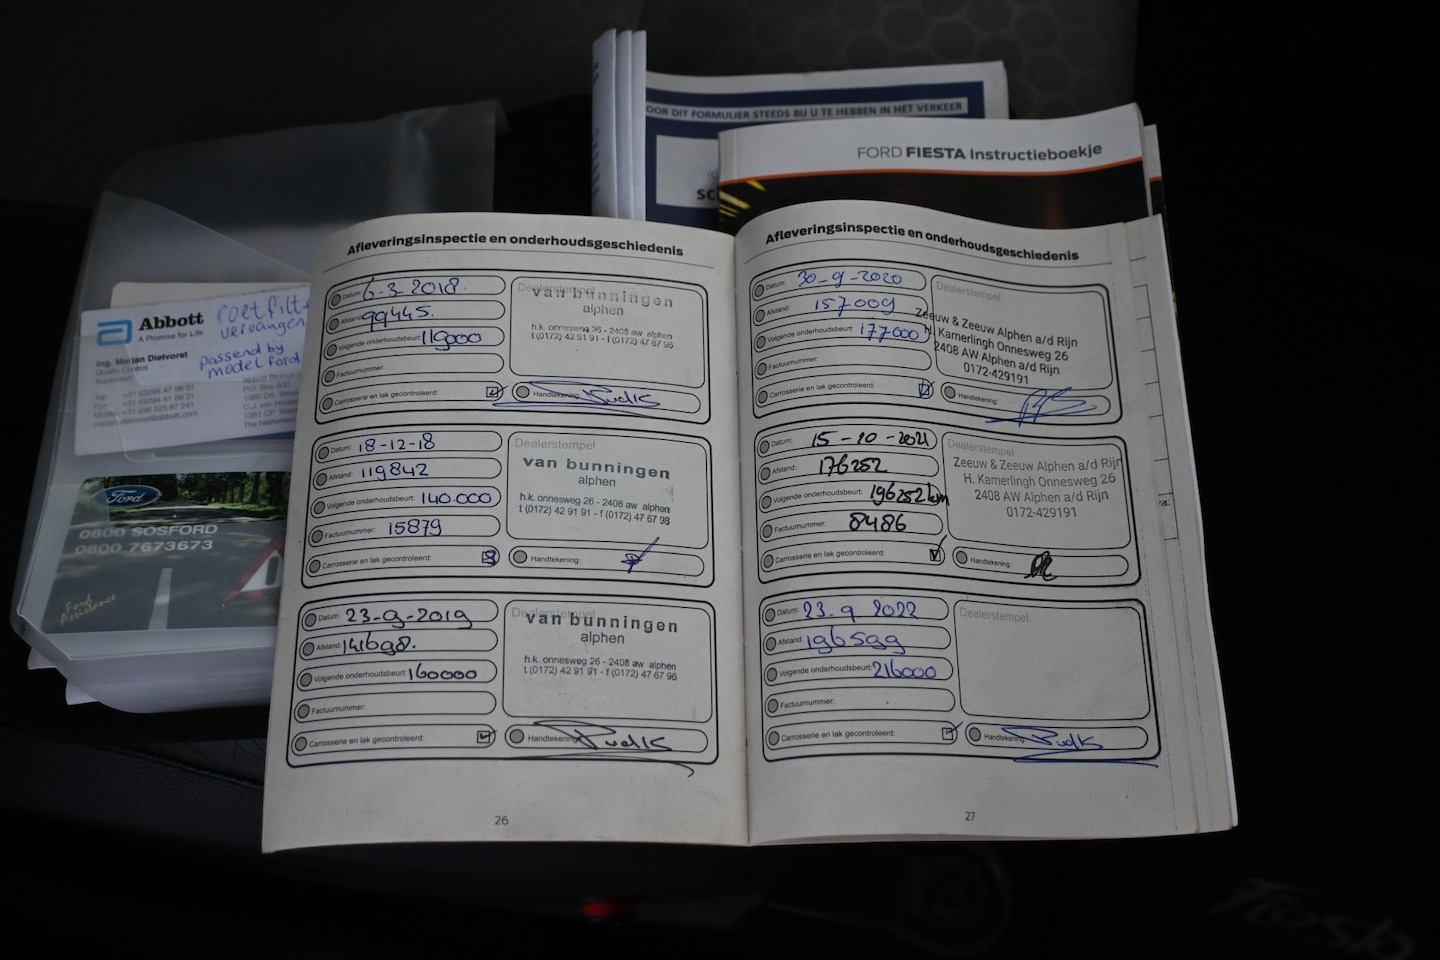 OOR DIT FORMULIER STEEDS BIJ U TE HEBBEN IN HET VERKEER
FORD FIESTA Instructieboekje
Abbott
A Promise for Life
Ing. Marjan Dietvorst
Quality Control
roetfilt
vervangen
passend by
model ford
Ford
0800 SOSFORD
0800 7673673
Ford
Assistance
Afleveringsinspectie en onderhoudsgeschiedenis
Datum: 6-3-2018.
Afstand: 99445.
Volgende onderhoudsbeurt: 119000
Factuurnummer:
Carrosserie en lak gecontroleerd:
Dealerstempel
van bunningen
alphen
h.k. onnesweg 26 - 2408 aw alphen
t (0172) 42 91 91 - f (0172) 47 67 98
Handtekening:
Datum: 18-12-18
Afstand: 119842
Volgende onderhoudsbeurt: 140.000
Factuurnummer: 15879
Carrosserie en lak gecontroleerd:
Dealerstempel
van bunningen
alphen
h.k. onnesweg 26 - 2408 aw alphen
t (0172) 42 91 91 - f (0172) 47 67 98
Handtekening:
Datum: 23-9-2019
Afstand: 141698.
Volgende onderhoudsbeurt: 160000
Factuurnummer:
Carrosserie en lak gecontroleerd:
Dealerstempel
van bunningen
alphen
h.k. onnesweg 26 - 2408 aw alphen
t (0172) 42 91 91 - f (0172) 47 67 98
Handtekening:
26
Afleveringsinspectie en onderhoudsgeschiedenis
Datum: 30-9-2020
Afstand: 157009
Volgende onderhoudsbeurt: 177000
Factuurnummer:
Carrosserie en lak gecontroleerd:
Dealerstempel
Zeeuw & Zeeuw Alphen a/d Rijn
H. Kamerlingh Onnesweg 26
2408 AW Alphen a/d Rijn
0172-429191
Handtekening:
Datum: 15-10-2021
Afstand: 176252
Volgende onderhoudsbeurt: 196252km
Factuurnummer: 8486
Carrosserie en lak gecontroleerd:
Dealerstempel
Zeeuw & Zeeuw Alphen a/d Rijn
H. Kamerlingh Onnesweg 26
2408 AW Alphen a/d Rijn
0172-429191
Handtekening:
Datum: 23-9 2022
Afstand: 196599
Volgende onderhoudsbeurt: 216000
Factuurnummer:
Carrosserie en lak gecontroleerd:
Dealerstempel
Handtekening:
27